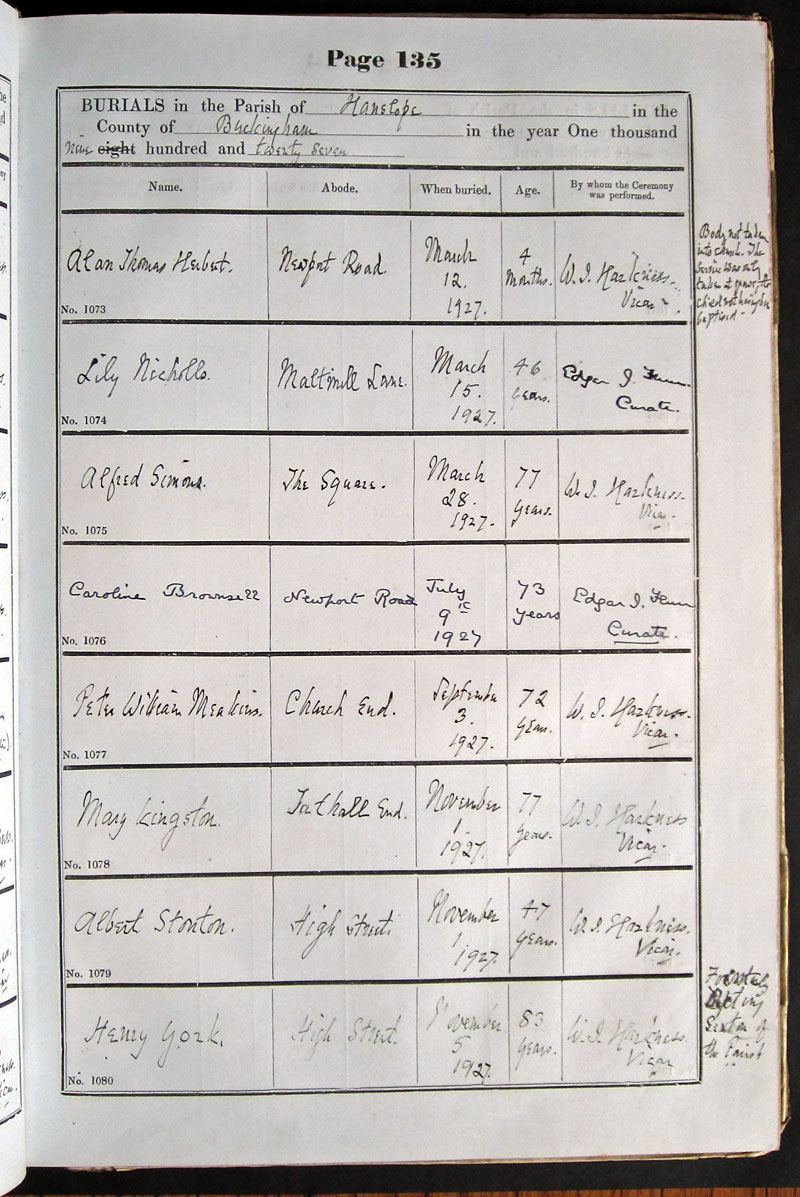 Page 135
BURIALS in the Parish of Hanslope in the
County of Buckingham in the year One thousand
Nine eight hundred and twenty seven
Name. Abode. When buried. Age. By whom the Ceremony was performed.
Alan Thomas Herbert. Newport Road March 12. 1927. 4 Months. W. J. Harkness. Vicar
No. 1073
Body not taken
into church. The
Service was only
taken at grave, the
child not having been
baptised
Lily Nicholls. Maltmill Lane. March 15. 1927. 46 years. Edgar J. Curate.
No. 1074
Alfred Simons. The Square. March 28. 1927. 77 years. W. J. Harkness. Vicar.
No. 1075
Caroline Brownsell Newport Road July 9 1927 73 years Edgar J. Curate.
No. 1076
Peter William Meakins. Church End. September 3. 1927. 72 years. W. J. Harkness. Vicar.
No. 1077
Mary Kingston. Tathall End. November 1. 1927. 77 years. W. J. Harkness Vicar.
No. 1078
Albert Stonton. High Street November 1 1927 47 years. W. J. Harkness. Vicar.
No. 1079
Henry York. High Street. November 5 1927. 83 years. W. J. Harkness. Vicar
No. 1080
Sexton of
the Parish